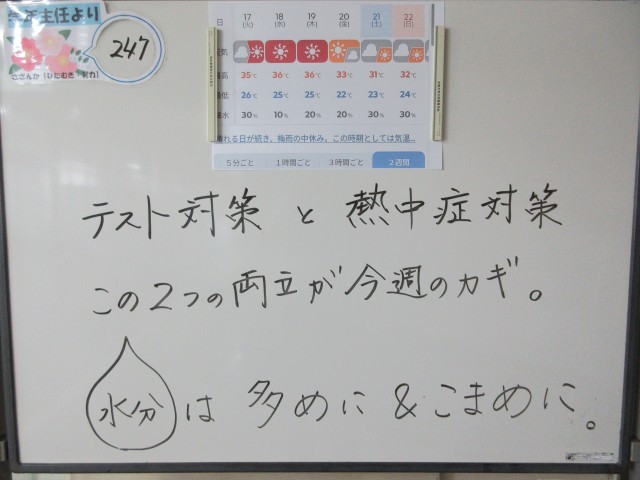 学年主任より
247
さざんか「ひたむき」「努力」
日 17 18 19 20 21 22
(火) (水) (木) (金) (土) (日)
天気
最高 35℃ 36℃ 36℃ 33℃ 31℃ 32℃
最低 26℃ 25℃ 25℃ 22℃ 23℃ 24℃
降水 30% 10% 20% 20% 30% 30%
晴れる日が続き、梅雨の中休み。この時期としては気温…
5分ごと 1時間ごと 3時間ごと 2週間
テスト対策 と 熱中症対策
この2つの両立が今週のカギ。
水分 は 多めに & こまめに。